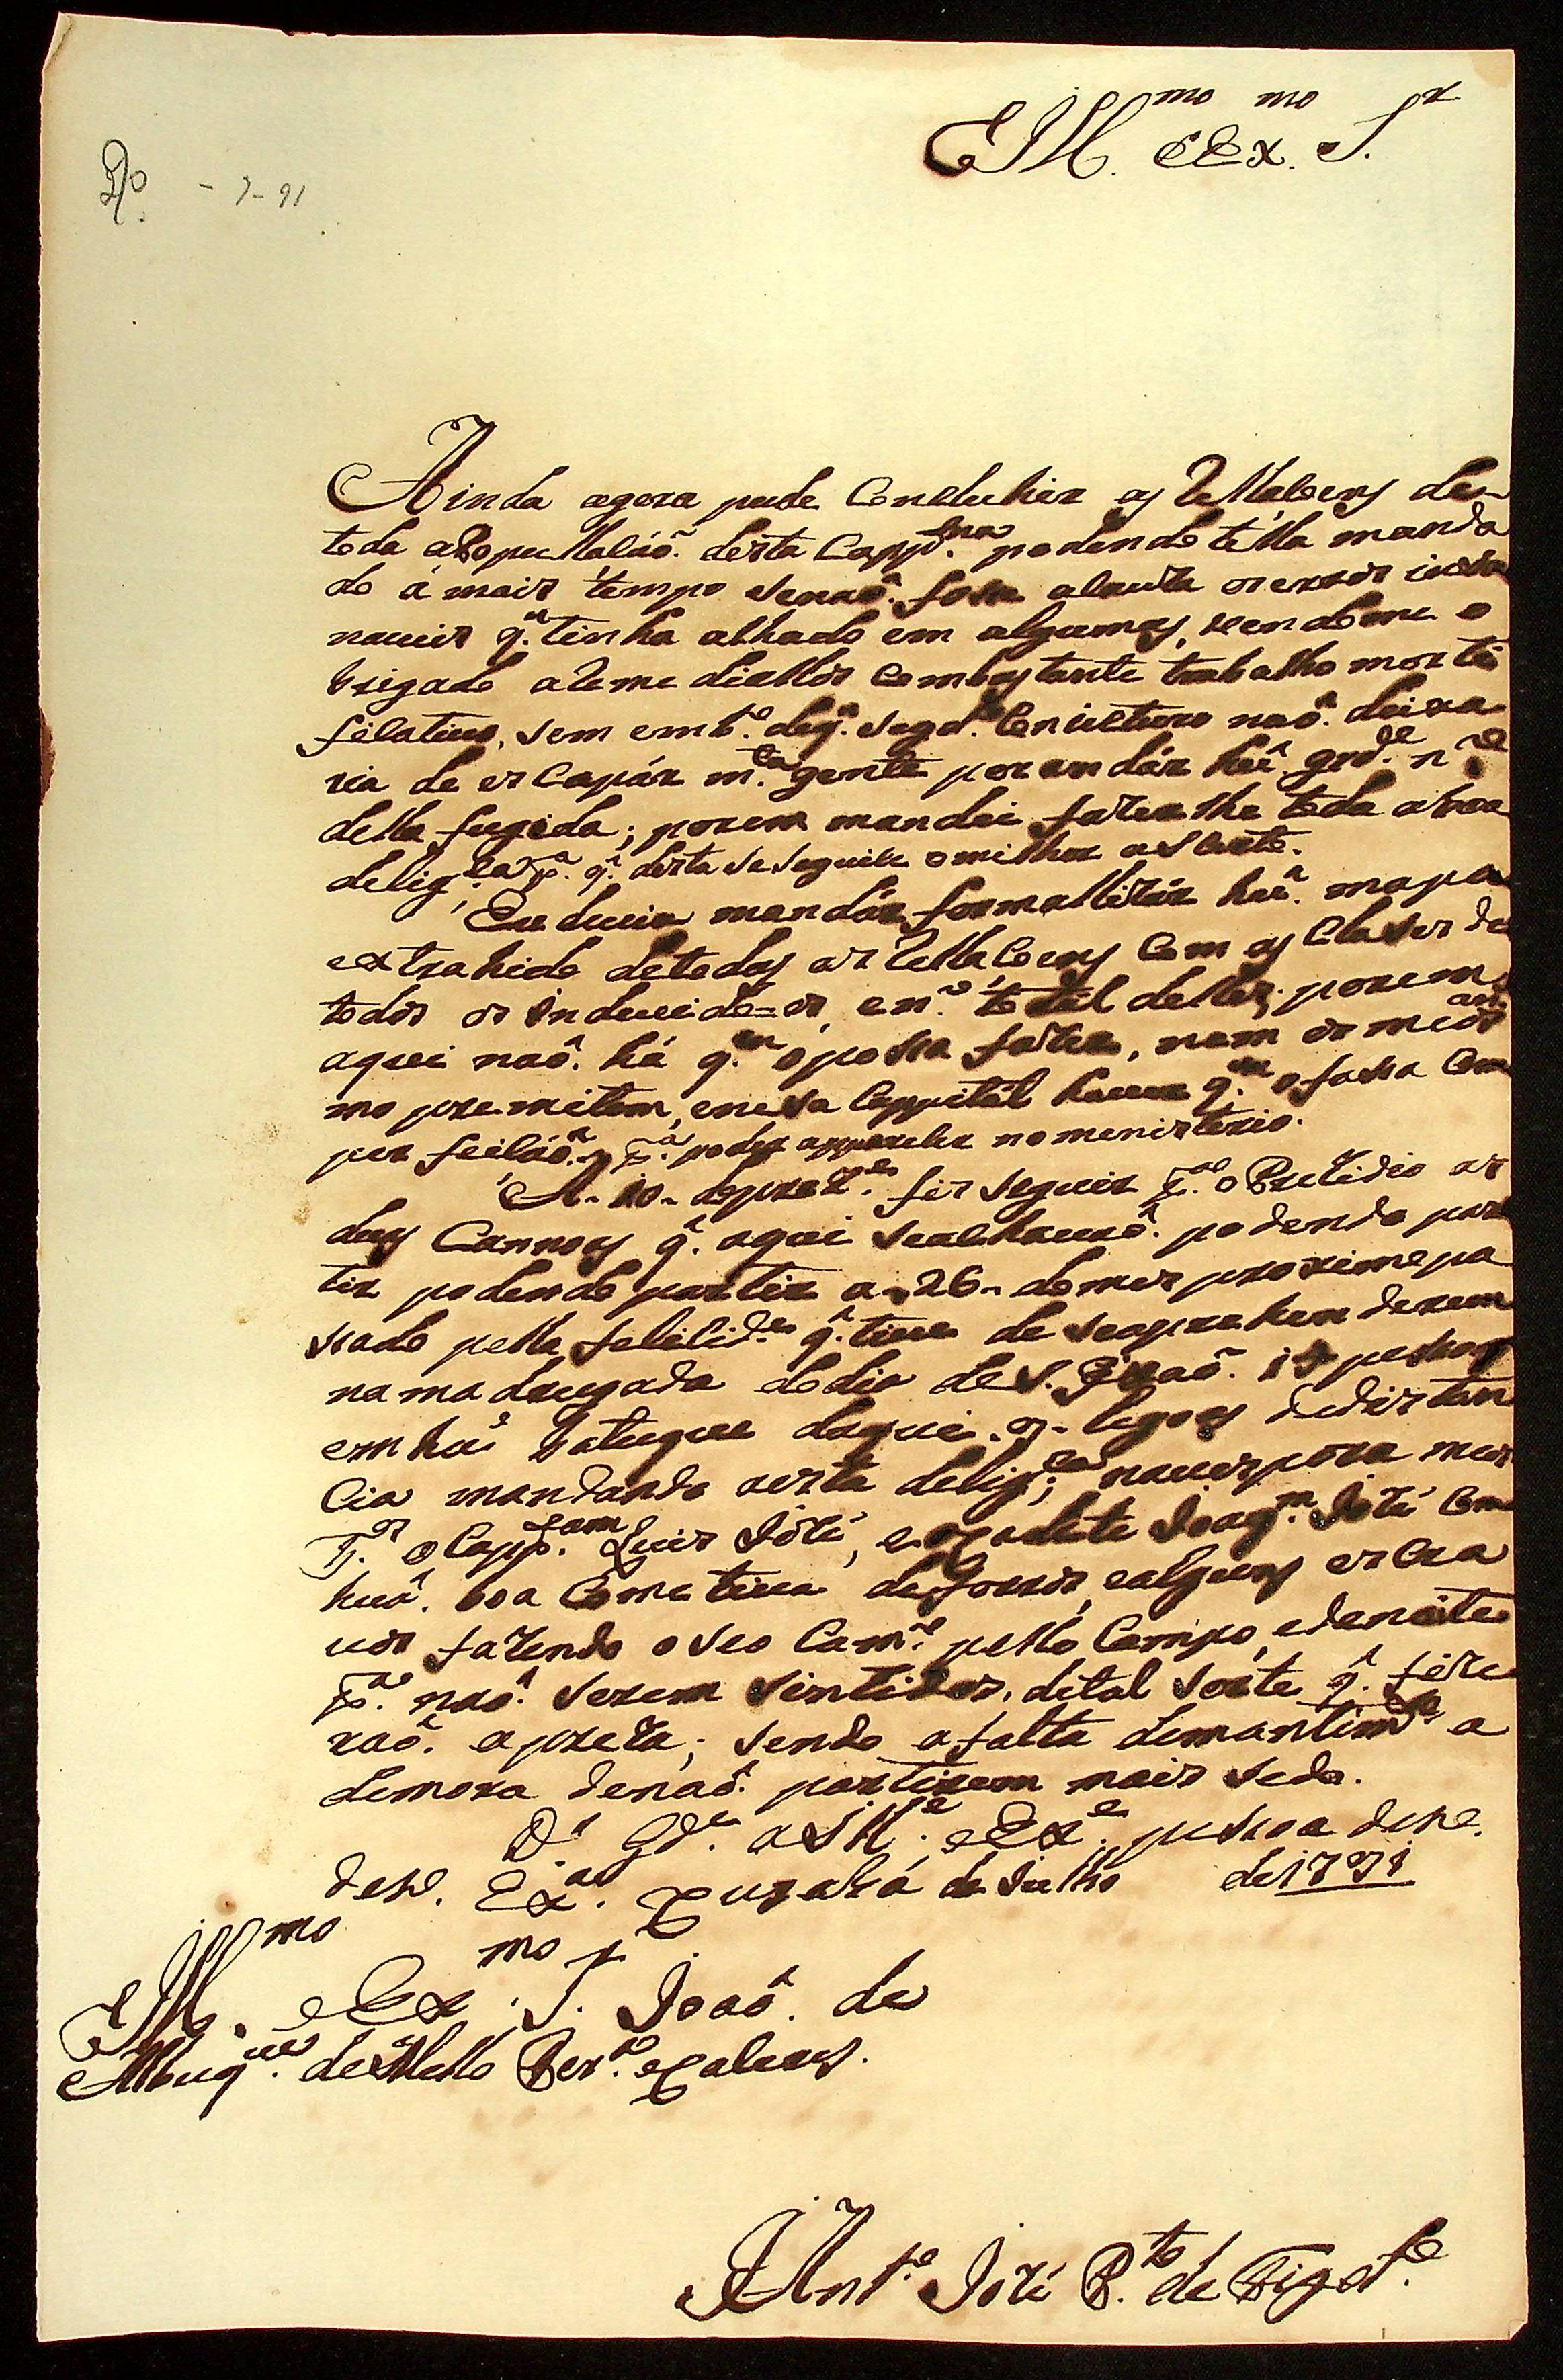 Ill.mo e Ex.mo S.r
R.do - 7-91
Ainda agora pude Concluhir as Rellaçens de
toda a Popullaçaõ. desta Capp.tna podendo tella manda
do á mais tempo senaõ. fosse a
naveis q.' tinha alhado em algumas, vendome o
brigado a Remediallos Com bastante trabalho mor te
ficativo, sem emb.o de q.' segd.o Conicturo naõ. deixa
ria de es Capár m.ta gente por andár huã grd.e n.o
della fugida; porem mandei fazer lhe toda a boa
delig.ca p.a q.' desta se seguise o milhor aSerto.
Eu devia mandár formallizár huã. mapa
extrahido de todas as Rellaçens Com as Clases de
todos os individe=os, e n.o total dellas; porem
aqui naõ. há q.m o possa fazer, nem os meos an
nos premitem, e nessa Cappitál haver q.m o fassa Com
per feiçáõ. p.a poder apparecer no menistério.
A-10-do prez.e fis seguir p.a o Prezidio as
duas Cannoas q.' aqui se alhavaõ. podendo par
tir podendo partir a-26-do mes proximo pa
ssado pella felicid.e q.' tive de se aprehen derem
na ma drugada do dia de S. Joaõ. 17 pessoas
em hũ batuque daqui-9-legoas de distan
Cia mandando a esta delig.ca naver pora meos
F.os o Capp.tam Luis Jozé, e o cadete Joaq.m Jozé Com
huã. boa Comotiva de forros, e alguns es Cra
vos fazendo o seo Cam.o pello Campo, e de noite
p.a naõ. serem sintidos, de tal sorte q.' fize
raõ. a preza; sendo a falta de mantim.to a
demora de naõ. partirem mais sedo.
D.s Gd.e a Ill.e e Ex.e pessoa de V.
de V. Ex.a Cuyabá de Julho de 1791
Ill.mo e Ex.mo S.r Joaõ. de
Albuq.ue de Mello Per.a e Caceres.
Ant.o Jozé P.to de Figd.o